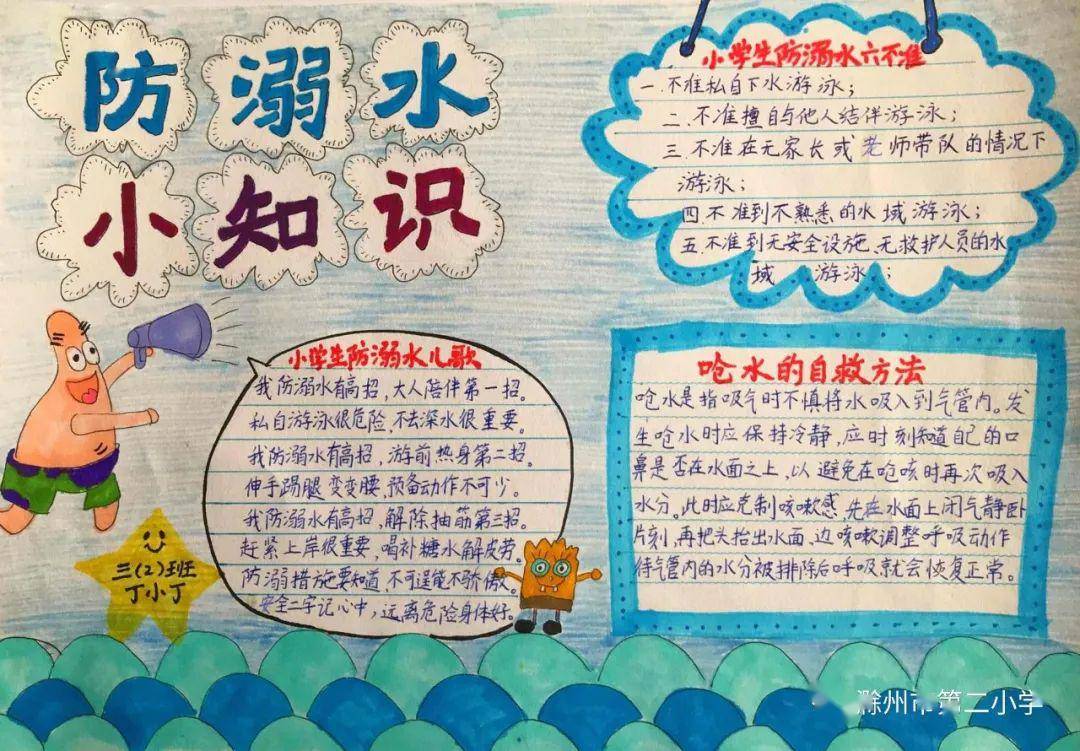 防溺水
小知识
小学生防溺水六不准
一.不准私自下水游泳；
二.不准擅自与他人结伴游泳；
三.不准在无家长或老师带队的情况下
游泳；
四.不准到不熟悉的水域游泳；
五.不准到无安全设施、无救护人员的水
域游泳；
小学生防溺水儿歌
我防溺水有高招，大人陪伴第一招。
私自游泳很危险，不去深水很重要。
我防溺水有高招，游前热身第二招。
伸手踢腿变变腰，预备动作不可少。
我防溺水有高招，解除抽筋第三招。
赶紧上岸很重要，喝补糖水解皮劳。
防溺措施要知道，不可逞能不骄傲。
安全二字记心中，远离危险身体好。
三(2)班
丁小丁
呛水的自救方法
呛水是指吸气时不慎将水吸入到气管内。发
生呛水时应保持冷静，应时刻知道自己的口
鼻是否在水面之上，以避免在呛咳时再次吸入
水分。此时应克制咳嗽感，先在水面上闭气静卧
片刻，再把头抬出水面，边咳嗽调整呼吸动作
待气管内的水分被排除后呼吸就会恢复正常。
滁州市第二小学